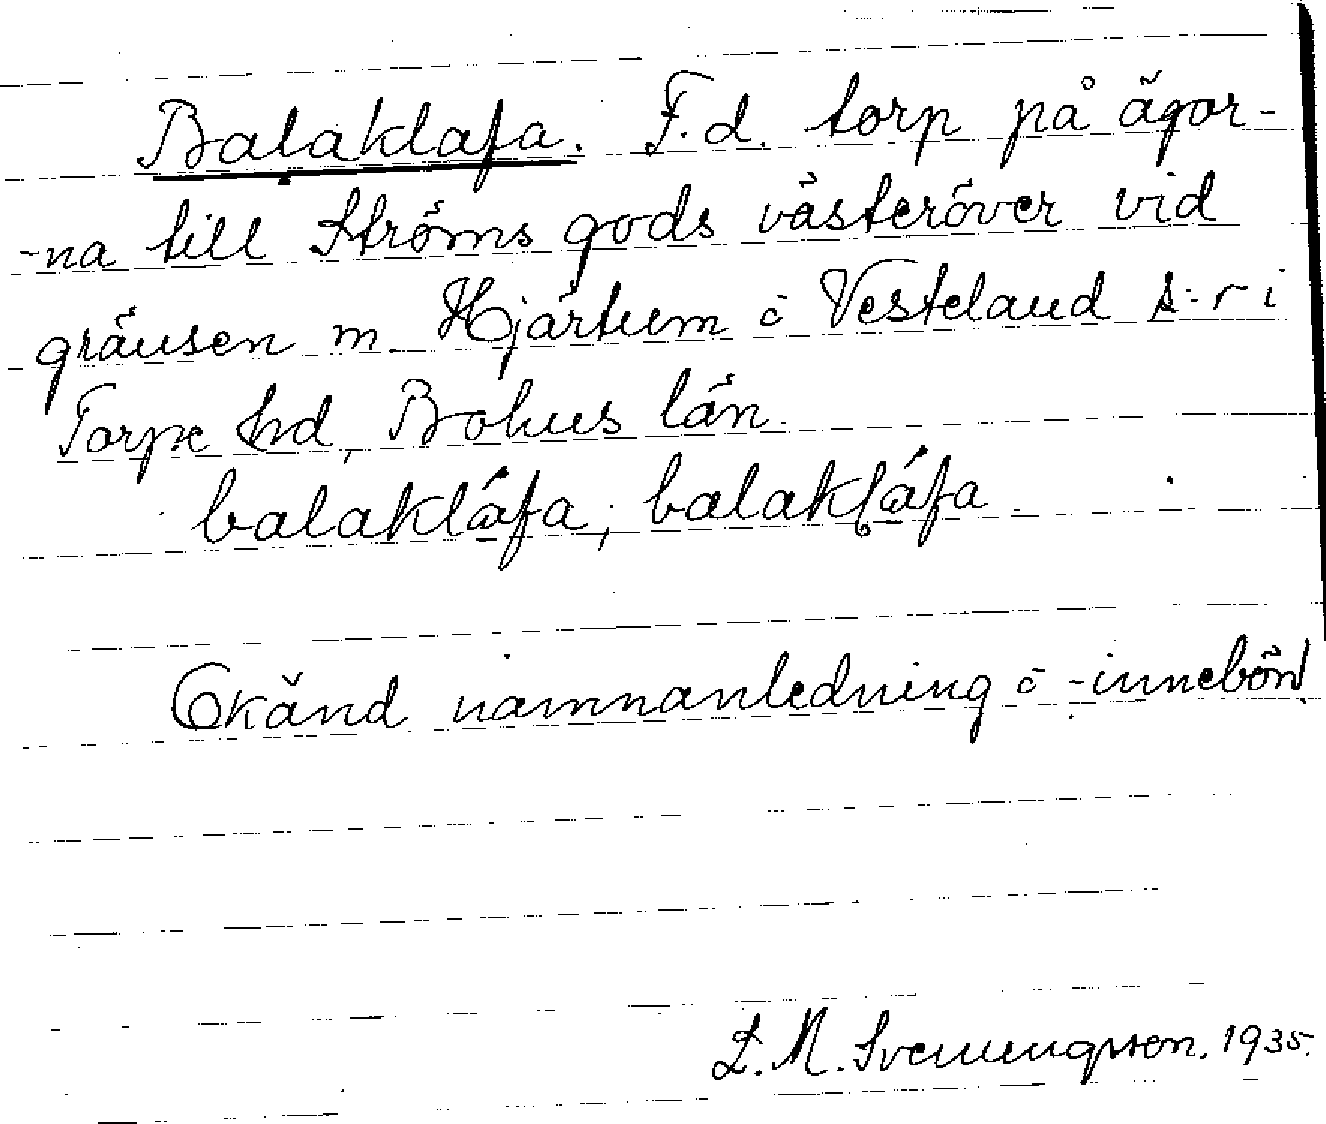 Balaklafa. F.d. torp på ägor-
-na till Ströms gods västeröver vid
gränsen m Hjärtum o Vesteland s:r i
Torpe hd, Bohus län.
balakláfa, balakláfa
Okänd namnanledning o -innebörd
L. M. Svenungsson. 1935.